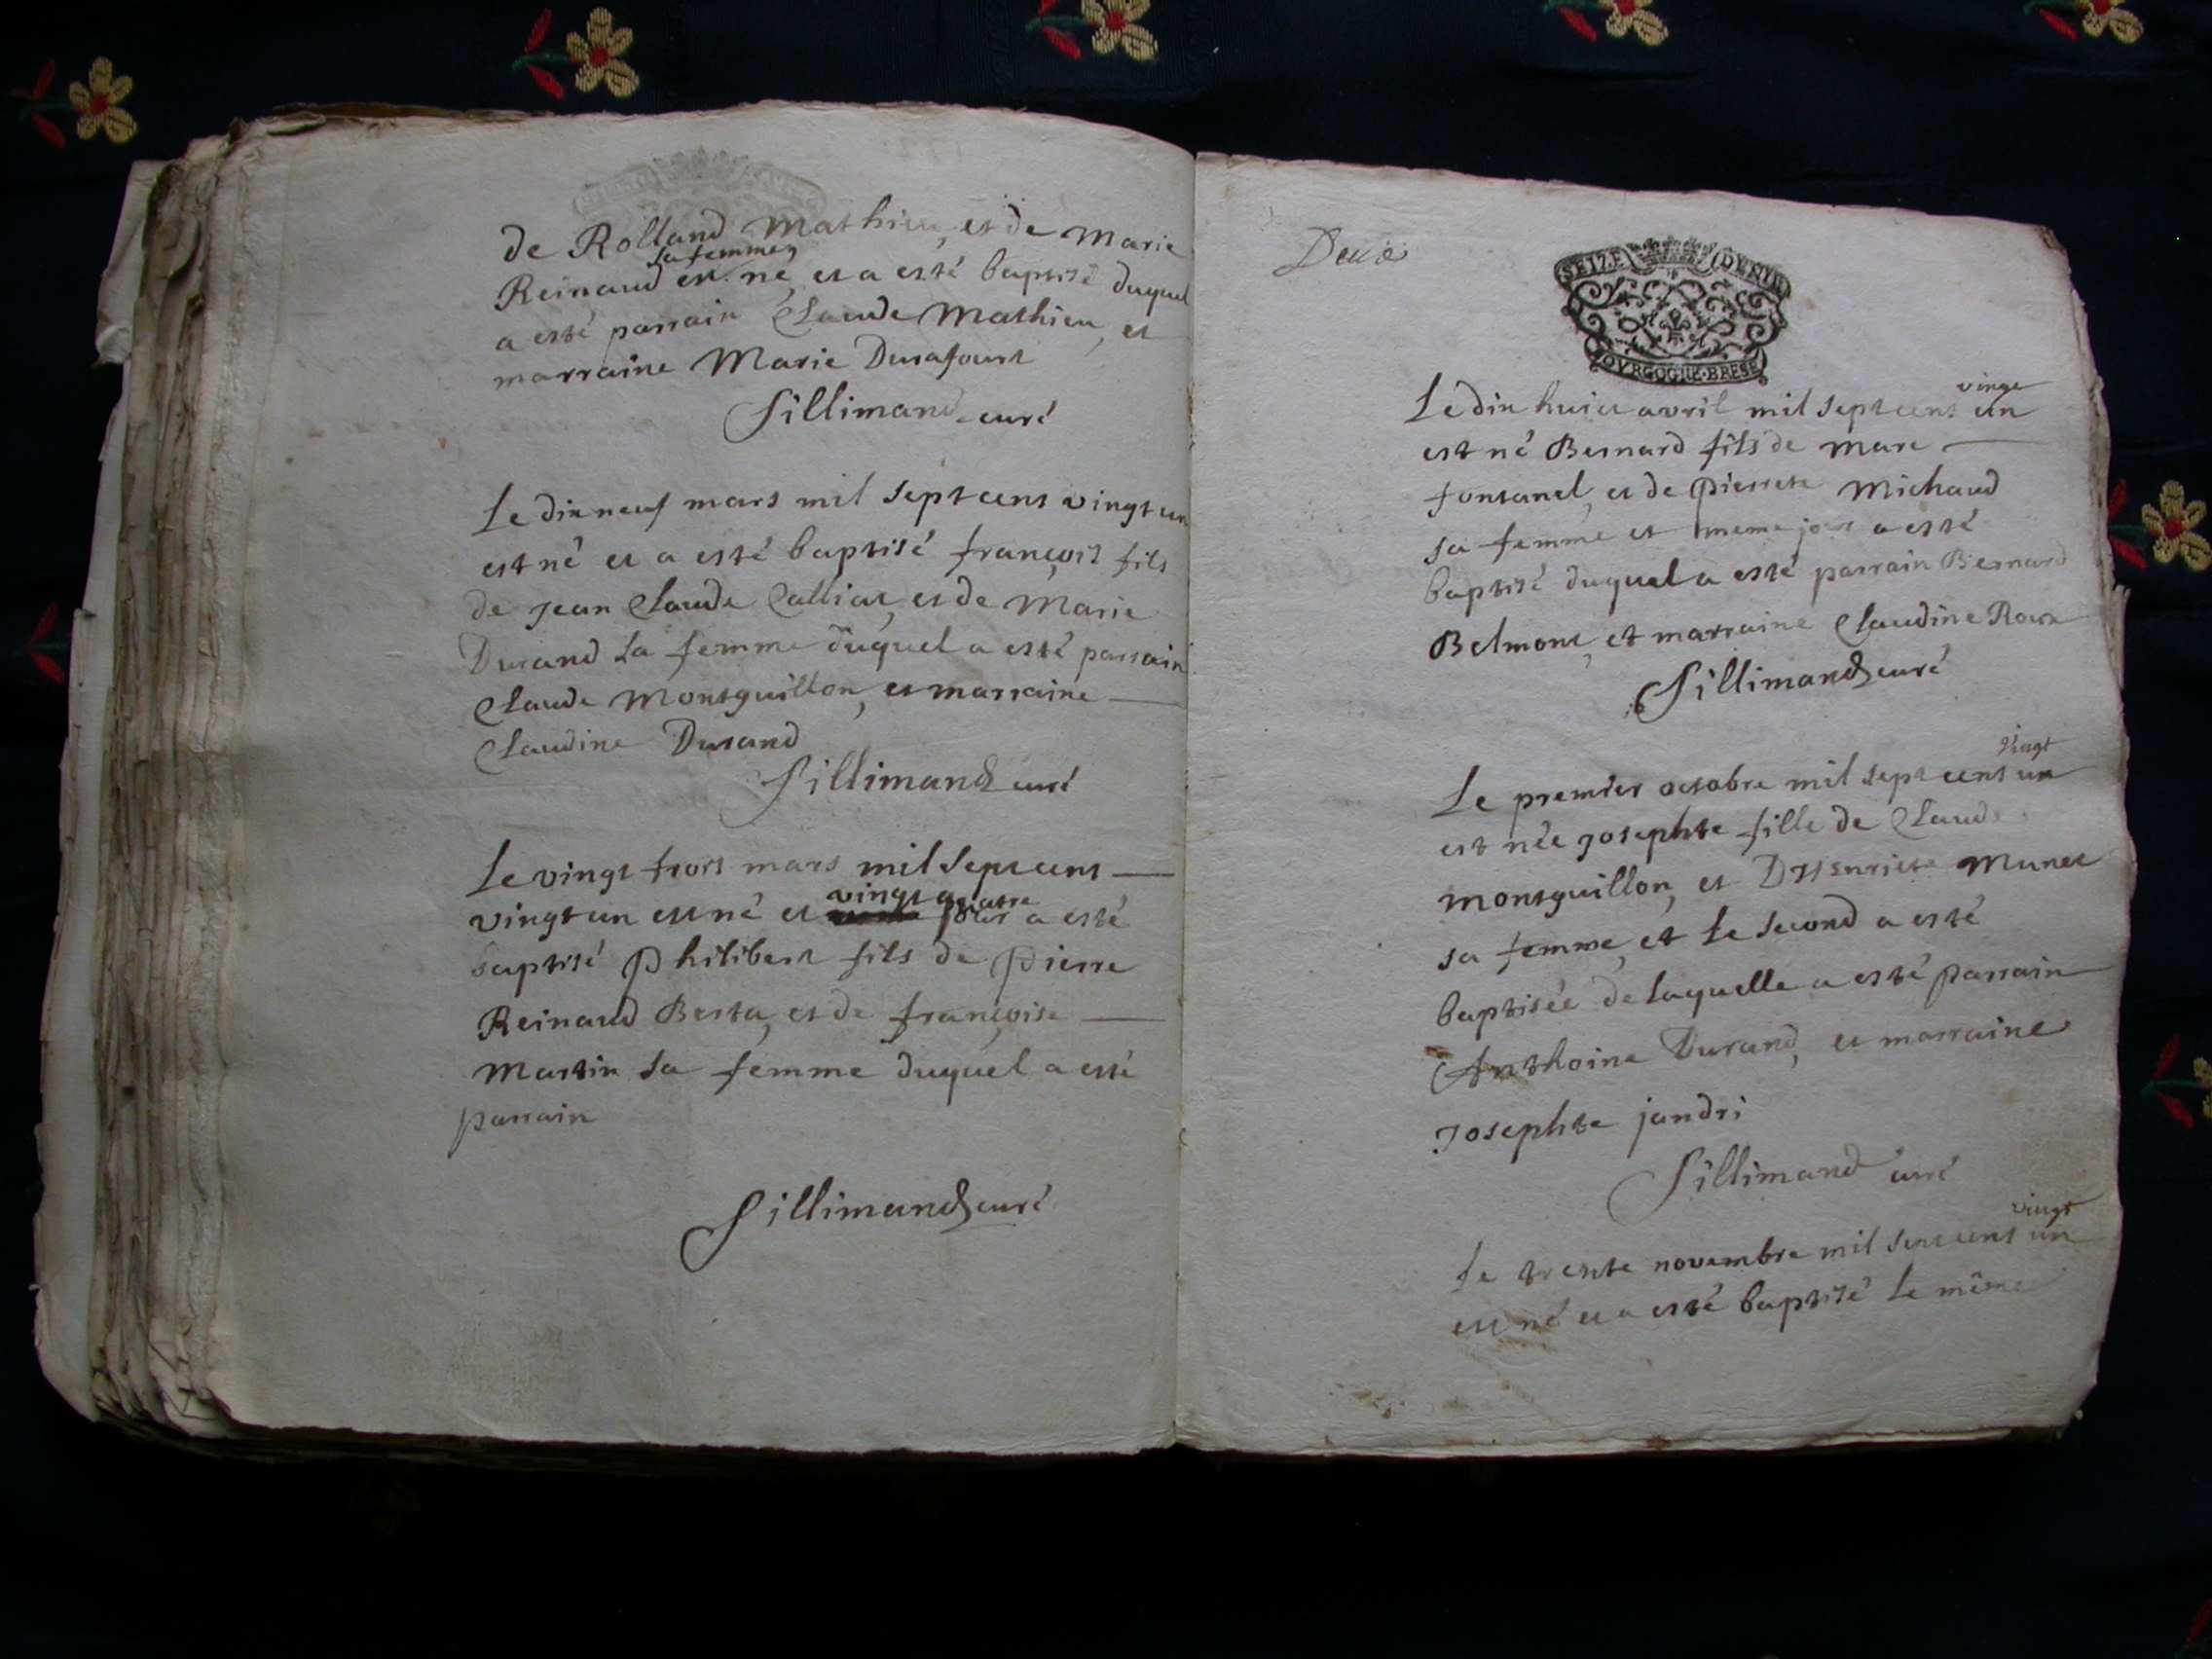 de Rolland Mathieu, et de Marie
sa femme
Reinaud est né, et a esté baptisé duquel
a esté parrain Claude Mathieu, et
marraine Marie Durafourt
Sillimand curé
Le dix neuf mars mil sept cent vingt un
est né et a esté baptisé françois fils
de Jean Claude Calliat, et de Marie
Durand sa femme duquel a esté parrain
Claude Montguillon, et marraine
Claudine Durand
Sillimand curé
Le vingt trois mars mil sept cent
vingt quatre
vingt un est né et jour a esté
baptisé Philibert fils de Pierre
Reinaud Berta, et de françoise
Martin sa femme duquel a esté
parrain
Sillimand curé
Deux
SEIZE DENIE
BOVRGOGNE·BRESE
vingt
Le dix huict avril mil sept cent un
est né Bernard fils de Marc
fontanel, et de Pierrete Michaud
sa femme et meme jour a esté
baptisé duquel a esté parrain Bernard
Belmont, et marraine Claudine Roux
Sillimand curé
vingt
Le premier octobre mil sept cent un
est née Josephte fille de Claude
Montguillon, et D'Henriete Munet
sa femme, et le second a esté
baptisée de laquelle a esté parrain
Anthoine Durand, et marraine
Josephte jandri
Sillimand curé
vingt
Le trente novembre mil sept cent un
est né et a esté baptisé le même